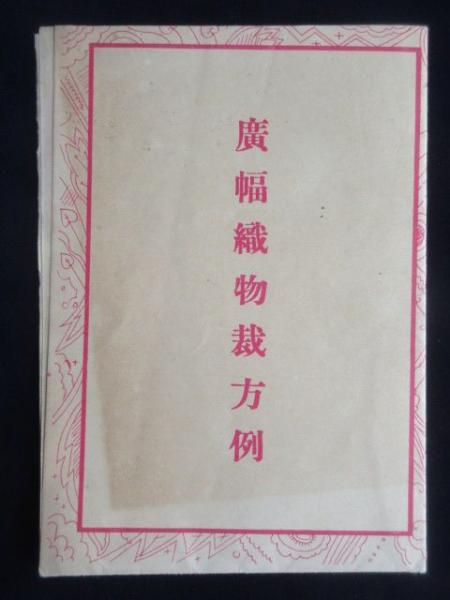 廣幅織物裁方例